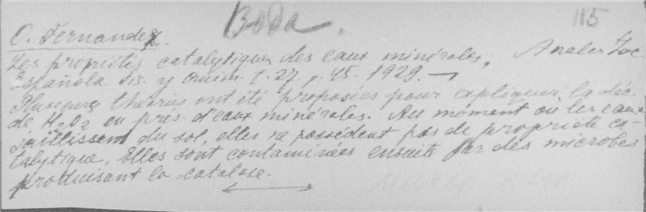 Boda.
115
O. Fernandez.
Les propriétés catalytiques des eaux minérales. Anales Soc.
Española Fis. y Quim. t. 27, p. 45. 1929. —
Plusieurs théories ont été proposées pour expliquer la déc.
de H2O2 en prés. d'eaux minérales. Au moment où les eaux
jaillissent du sol, elles ne possèdent pas de propriété ca-
talytique. Elles sont contaminées ensuite par des microbes
produisant la catalase.